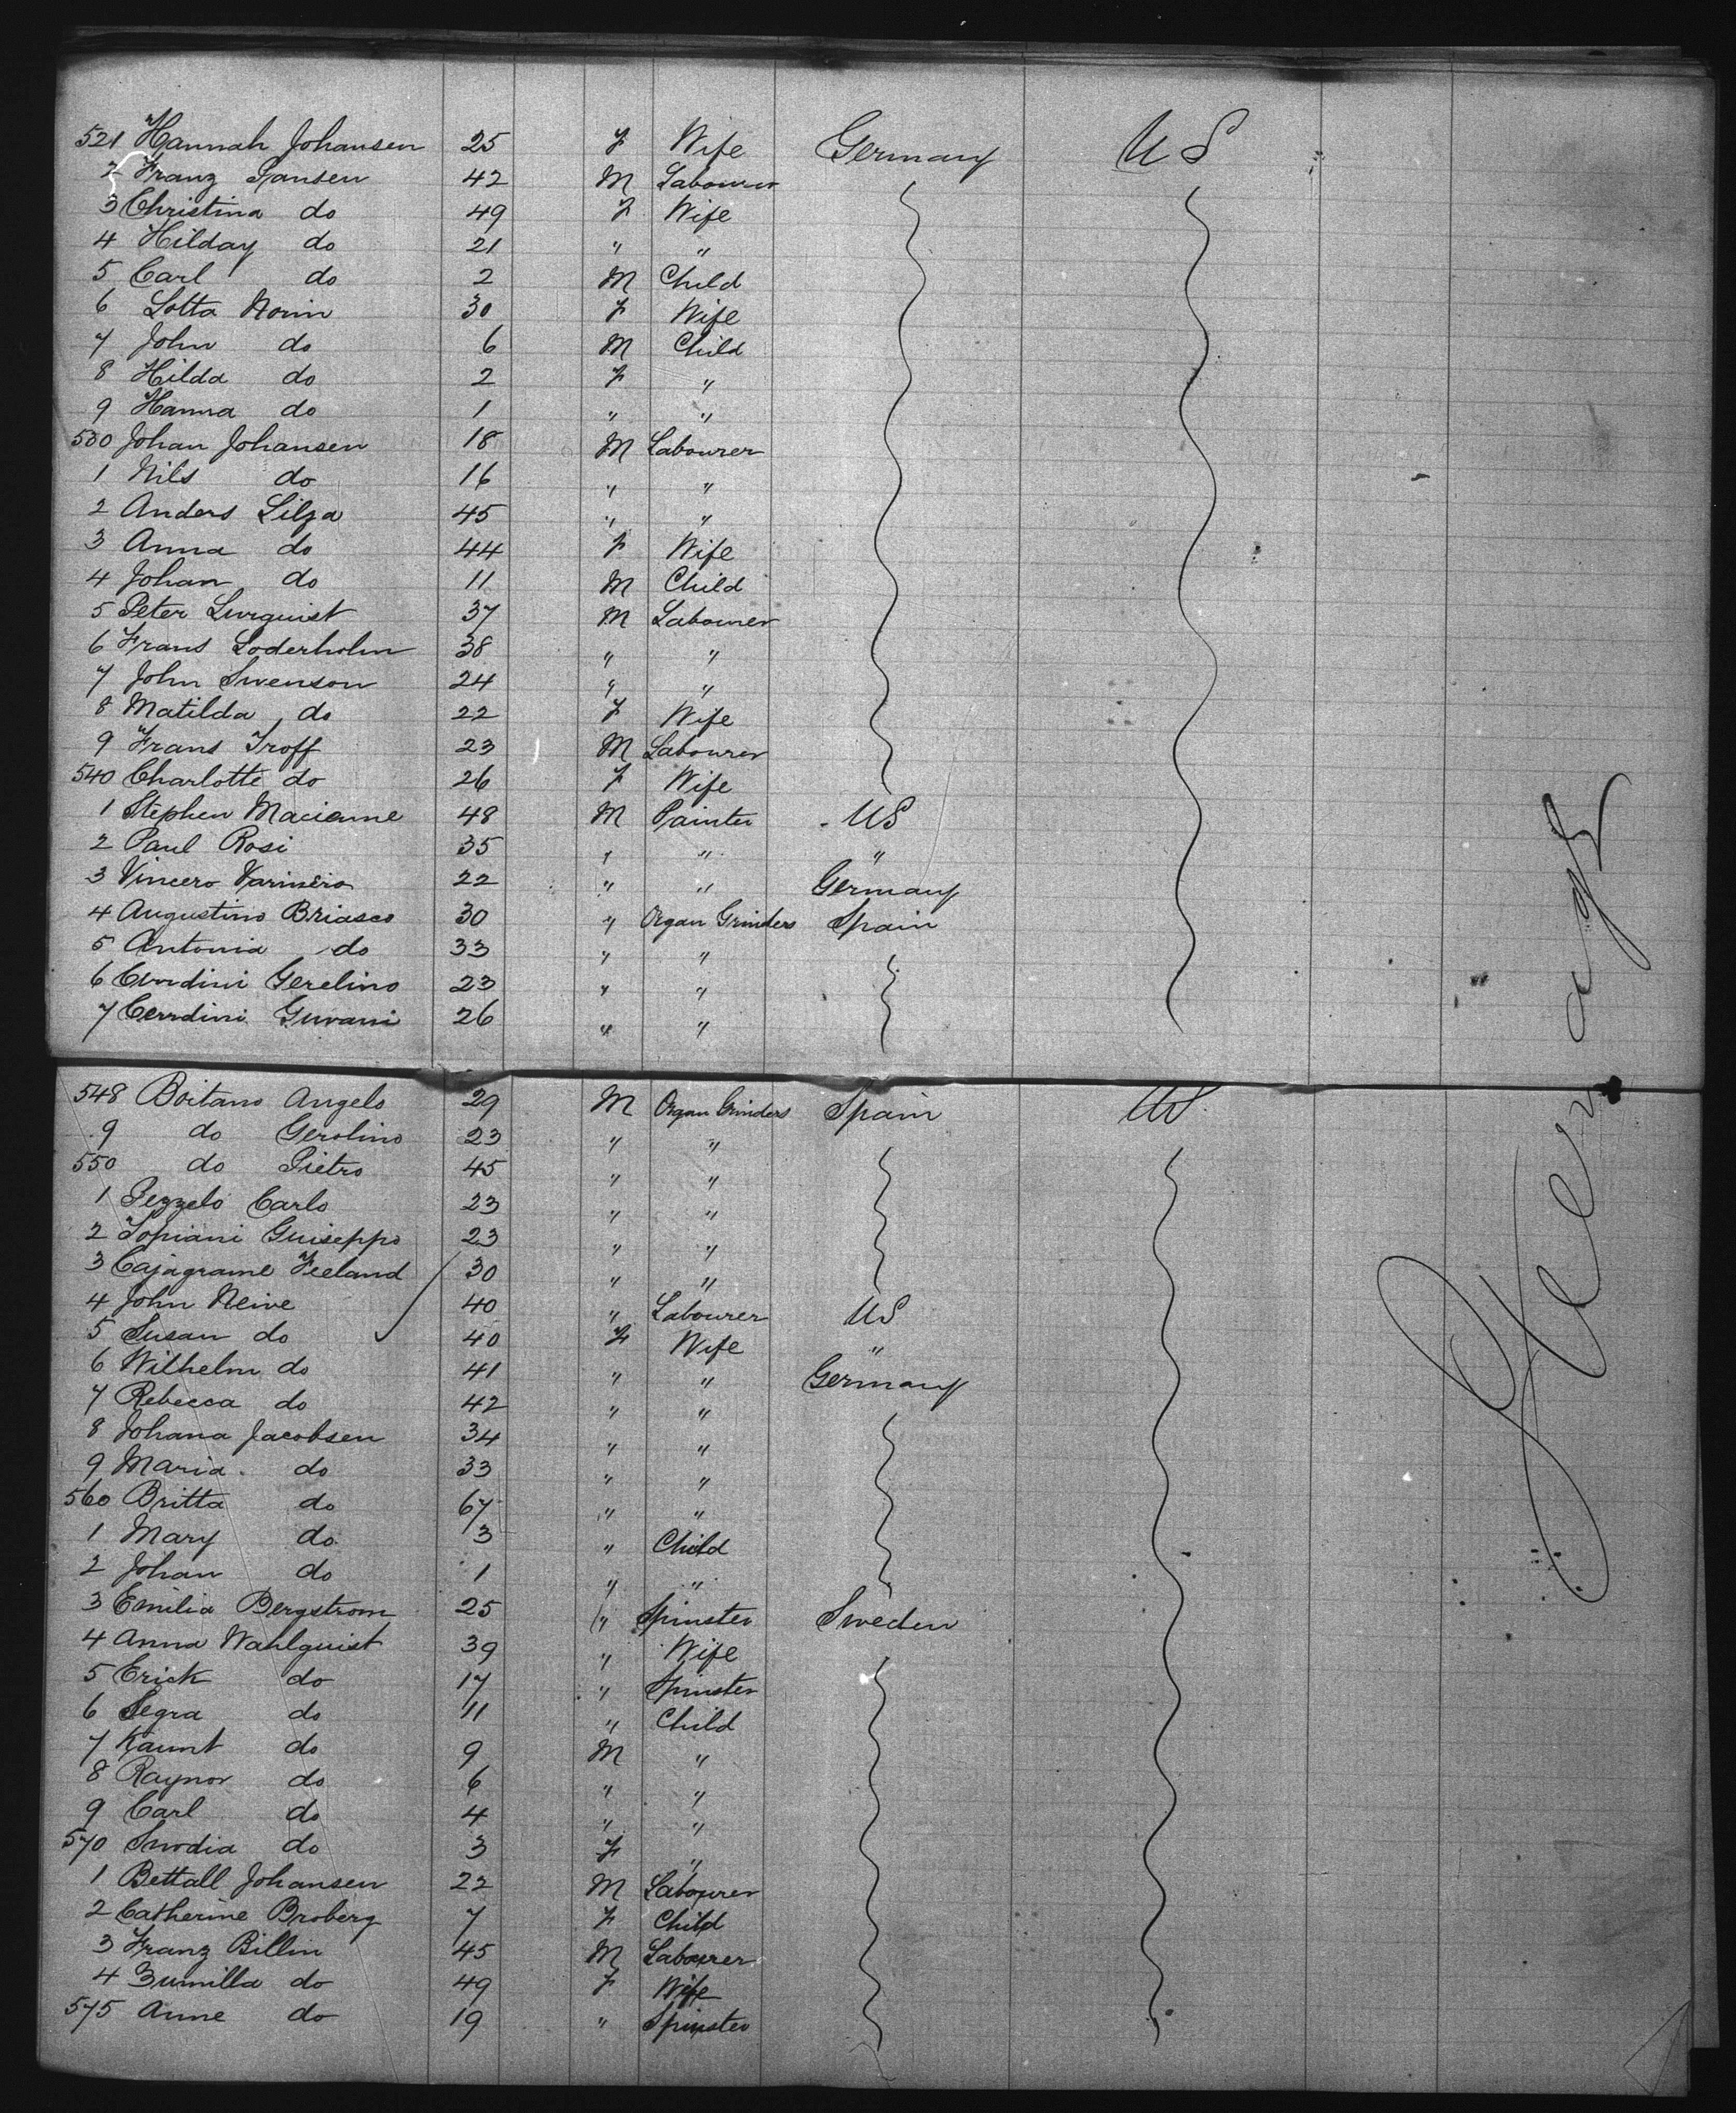 521 Hannah Johansen 25 F Wife Germany U S
2 Franz Jansen 42 M Labourer
3 Christina do 49 F Wife
4 Hilday do 21 " "
5 Carl do 2 M Child
6 Lotta Norin 30 F Wife
7 John do 6 M Child
8 Hilda do 2 F "
9 Hanna do 1 " "
530 Johan Johansen 18 M Labourer
1 Nils do 16 " "
2 Anders Lilja 45 " "
3 Anna do 44 F Wife
4 Johan do 11 M Child
5 Peter Lurquist 37 M Labourer
6 Frans Soderholm 38 " "
7 John Swenson 24 " "
8 Matilda do 22 F Wife
9 Frans Troff 23 M Labourer
540 Charlotte do 26 F Wife
1 Stephen 48 M Painter US
2 Paul Rosi 35 " " "
3 Vincero 22 " " Germany
4 Augustino Briasco 30 " Organ Grinders Spain
5 Antonia do 33 " "
6 Gerelino 23 " "
7 26 " "
548 Boitano Angelo 29 M Organ Grinders Spain US
9 do Gerolino 23 " "
550 do Pietro 45 " "
1 Pezzelo Carlo 23 " "
2 Topiani Guiseppo 23 " "
3 30 " "
4 John Neive 40 " Labourer US
5 Susan do 40 F Wife "
6 Wilhelm do 41 " " Germany
7 Rebecca do 42 " "
8 Johana Jacobsen 34 " "
9 Maria do 33 " "
560 Britta do 67 " "
1 Mary do 3 " Child
2 Johan do 1 " "
3 Emilia Bergstrom 25 " Spinster Sweden
4 Anna Wahlquist 39 " Wife
5 Erick do 17 " Spinster
6 Segra do 11 " Child
7 Kaunt do 9 M "
8 Raynor do 6 " "
9 Carl do 4 " "
570 do 3 F "
1 Bettall Johansen 22 M Labourer
2 Catherine Broberg 7 F Child
3 Franz Billin 45 M Labourer
4 do 49 F Wife
575 Anne do 19 " Spinster
Steerage